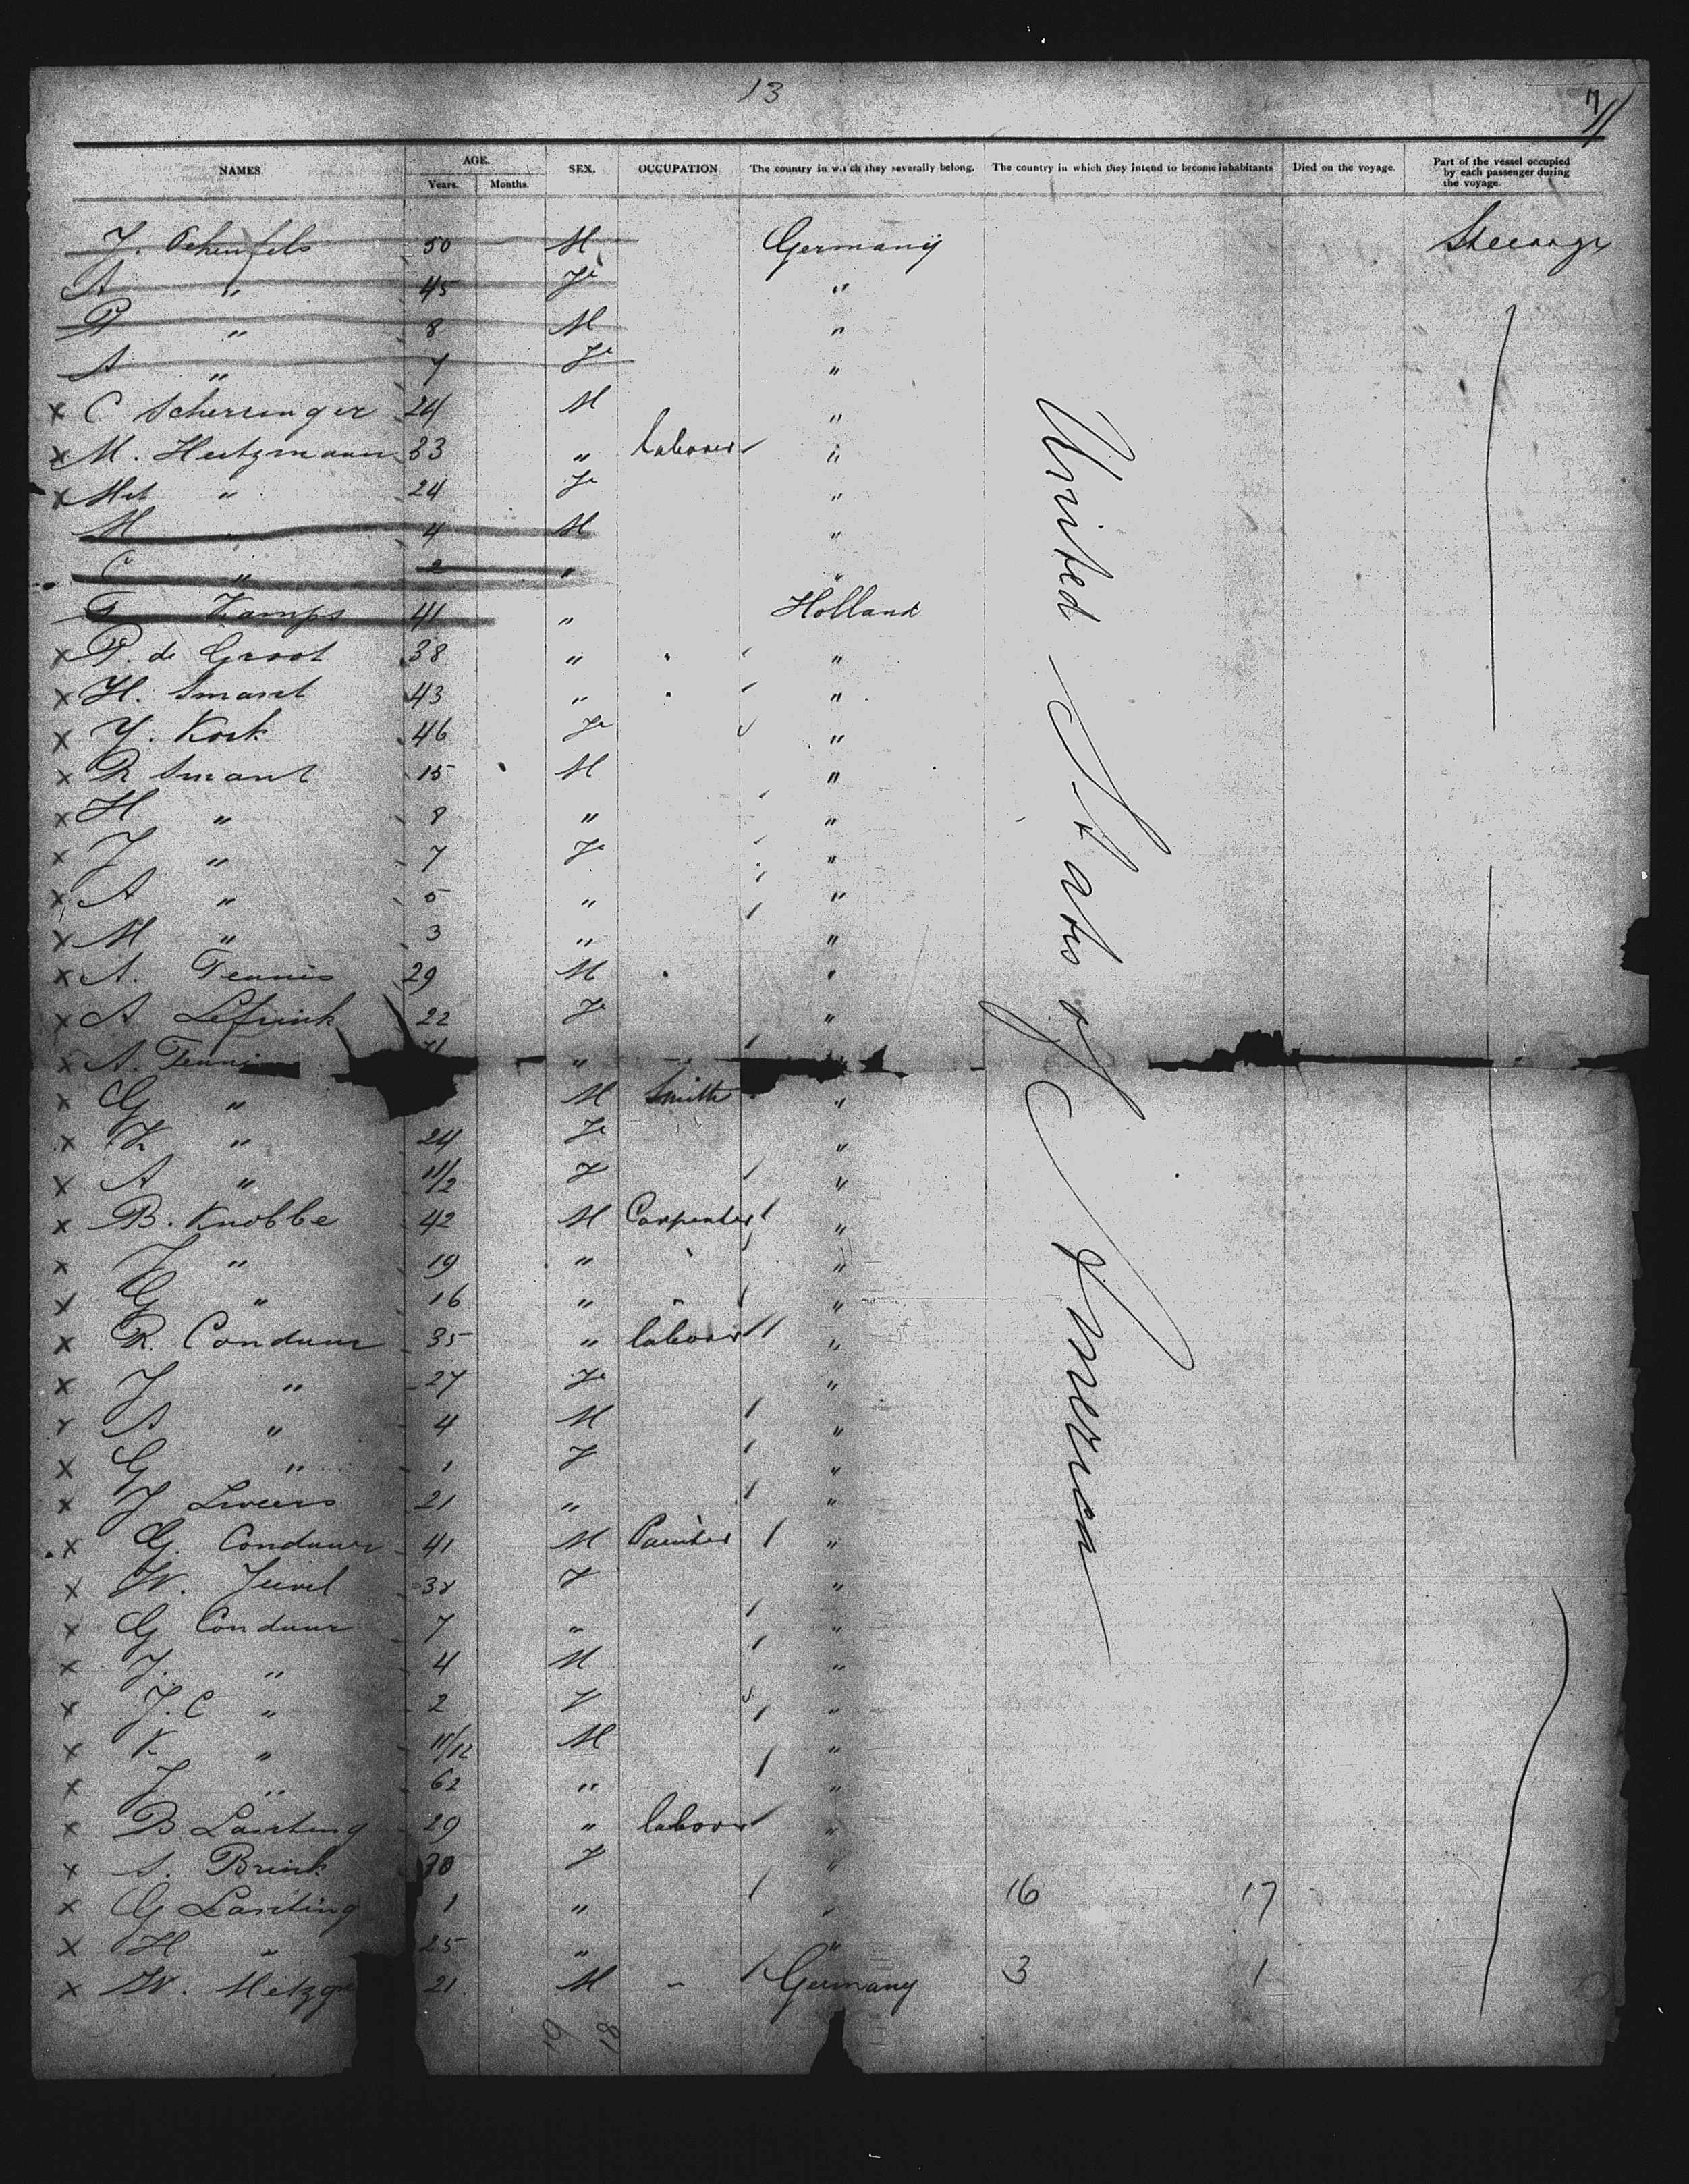 13
NAMES. AGE. Years. Months. SEX. OCCUPATION The country in which they severally belong. The country in which they intend to become inhabitants Died on the voyage. Part of the vessel occupied by each passenger during the voyage.
50 M Germany Steerage
A " 45 Fe "
8 M "
A " 7 Fe "
x C Scherringer 24 M "
x M. Heitzmann 33 " laborer "
x " 24 Fe "
M 4 M "
C " 2 " "
Kamps 41 " Holland
x P. de Groot 38 " " "
x H. Smant 43 " " "
x Y. Kock 46 Fe "
x R Smant 15 M "
x H " 8 " "
x J " 7 Fe "
x A " 5 " "
x M " 3 " "
x A. Teunis 29 M "
x A Lefrink 22 Fe "
x A. "
x G " M Smith "
x K " 24 Fe "
x A " 11/2 F "
x B. Knobbe 42 M Carpenter "
x J " 19 " " "
x G " 16 " " "
x R. Conduur 35 " laborer "
x J " 27 Fe "
x A " 4 M "
x G " 1 F "
x J 21 " "
x G. Conduur 41 M Painter "
x W. 38 F "
x G Conduur 7 " "
x J. " 4 M "
x J. C " 2 F "
x K " 11/12 M "
x J " 62 " "
x B Lansting 29 " laborer "
x S. Brink 30 F "
x G Lansting 1 " " 16 17
x H " 25 " "
x W. 21 M " Germany 3 1
United States of America
19 18